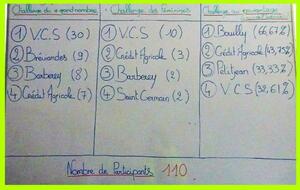 Challenge du + grand nombre
① V.C.S (30)
② Bréviandes (9)
③ Barberey (8)
④ Crédit Agricole (7)
Challenge des Féminines
① V.C.S (10)
② Crédit Agricole (3)
③ Barberey (2)
④ Saint Germain (2)
Challenge au pourcentage
① Bouilly (66,67%)
② Crédit Agricole (43,75%)
③ Petitjean (33,33%)
④ V.C.S (32,61%)
Nombre de Participants 110